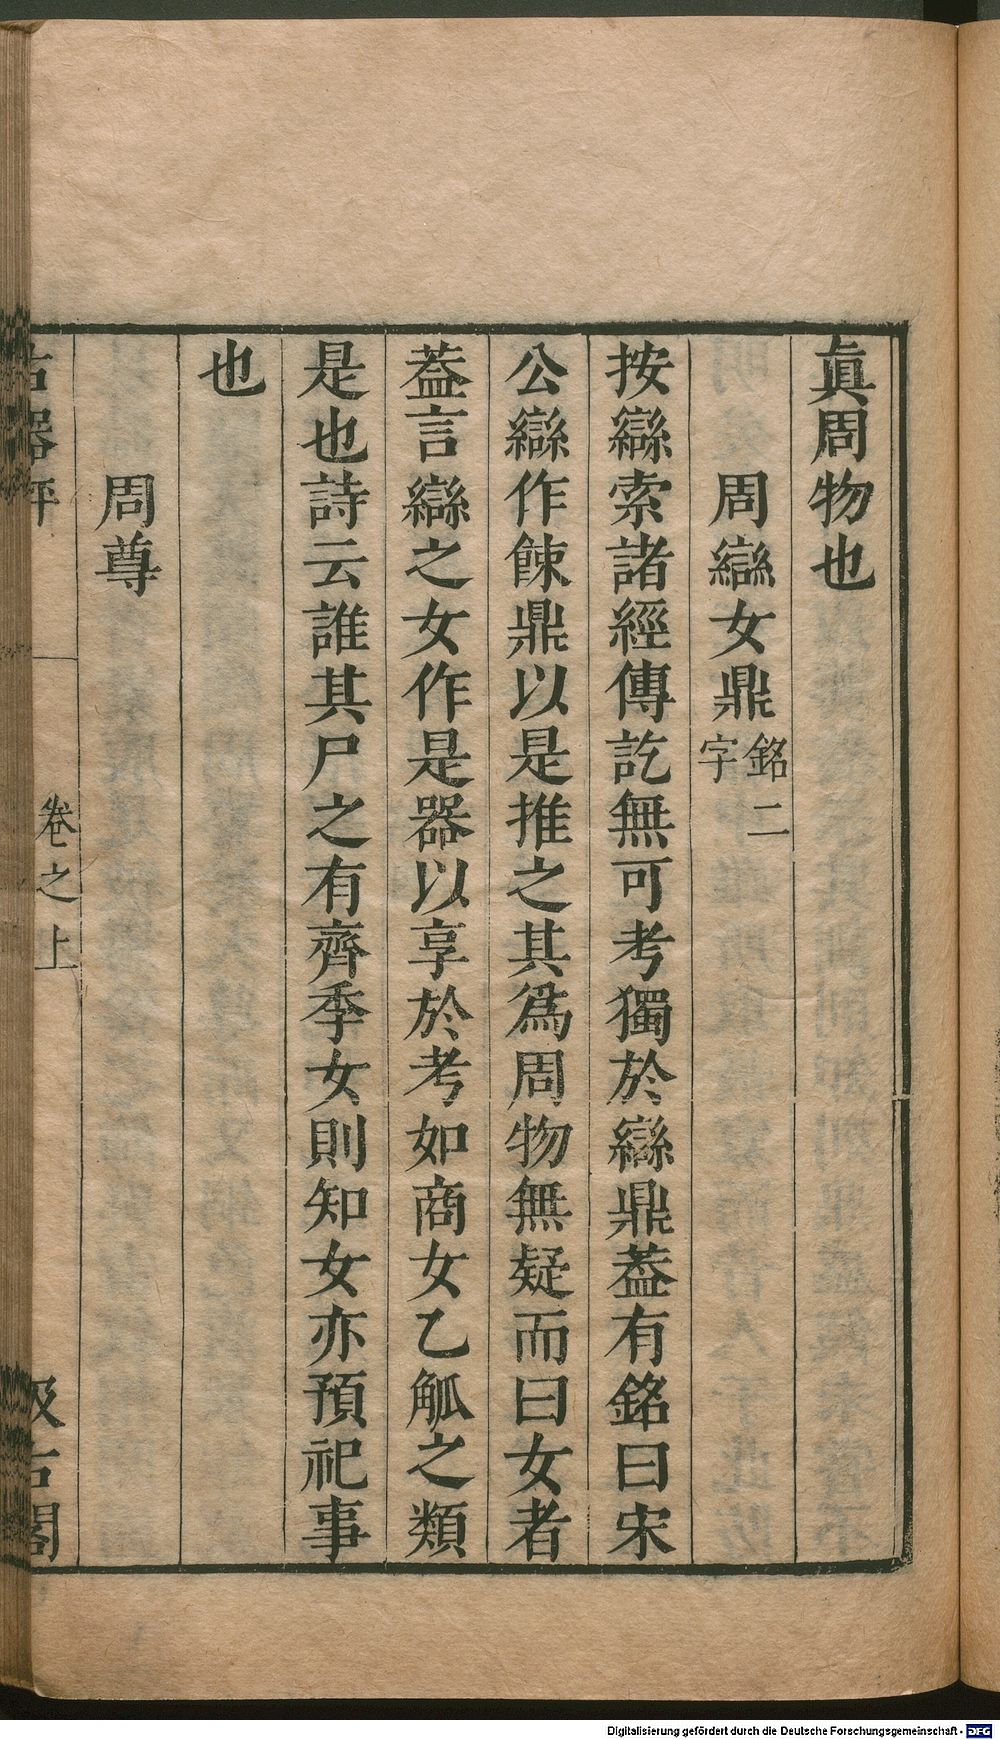 眞周物也
周䜌女鼎銘二字
按䜌索諸經傳訖無可考獨於䜌鼎葢有銘曰宋
公䜌作餗鼎以是推之其爲周物無疑而曰女者
葢言䜌之女作是器以享於考如商女乙觚之類
是也詩云誰其尸之有齊季女則知女亦預祀事
也
周尊
古器評
卷之上
汲古閣
Digitalisierung gefördert durch die Deutsche Forschungsgemeinschaft - DFG